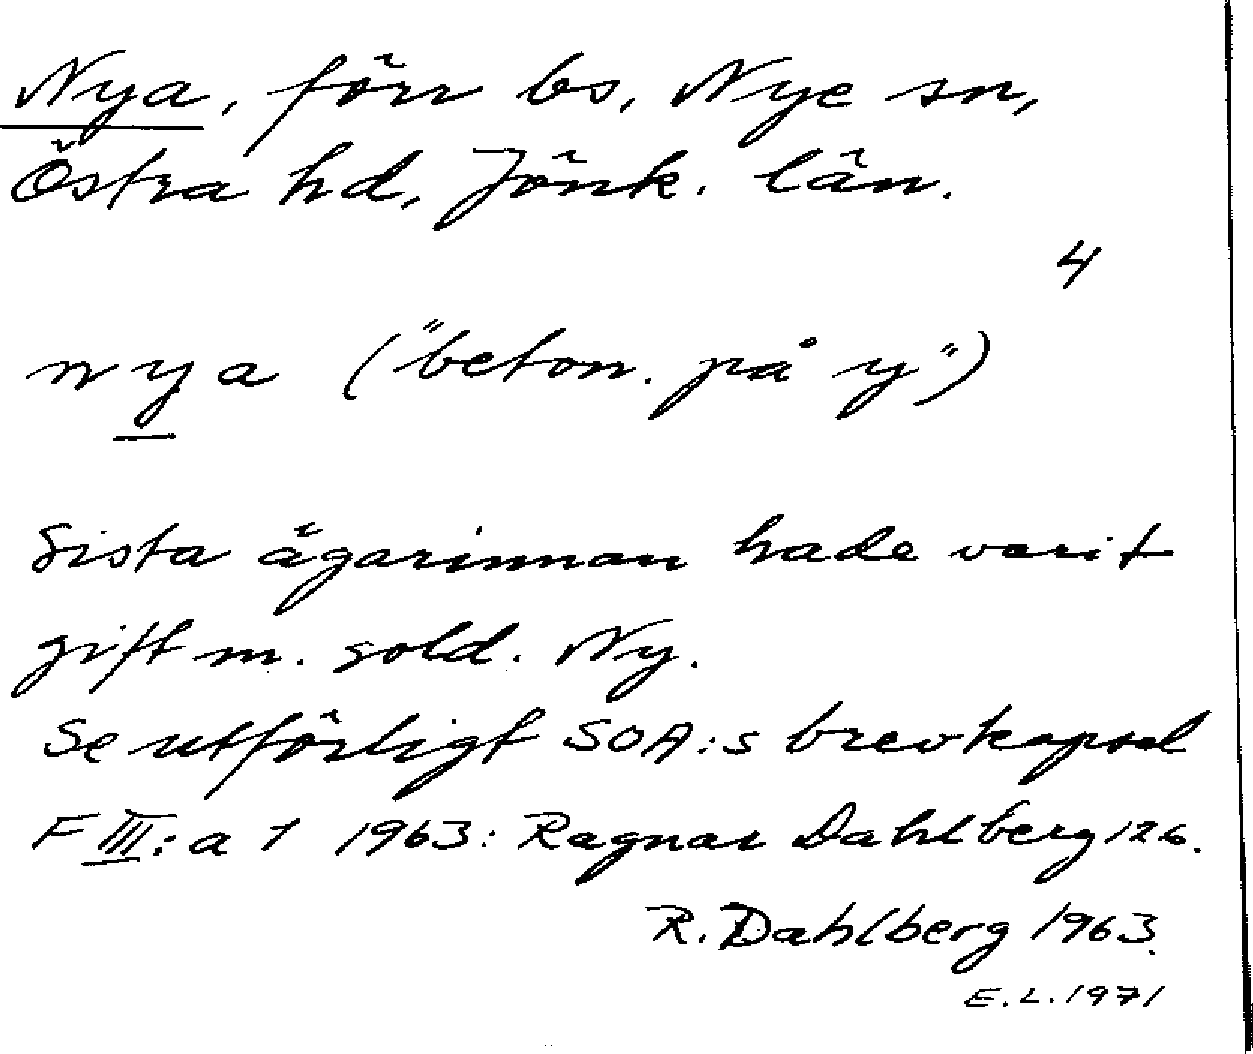 Nya, förr bs, Nye sn,
Östra hd, Jönk. län.
4
nya ("beton. på y")
Sista ägarinnan hade varit
gift m. sold. Ny.
Se utförligt SOA:s brevkapsel
F III: a 1 1963: Ragnar Dahlberg 126.
R. Dahlberg 1963.
E.L. 1971